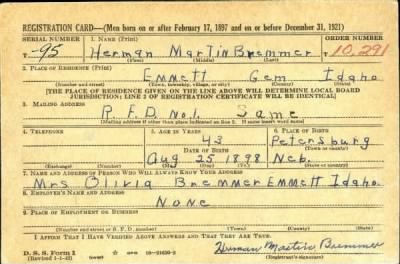 REGISTRATION CARD—(Men born on or after February 17, 1897 and on or before December 31, 1921)
SERIAL NUMBER 1. NAME (Print) ORDER NUMBER
T-95 Herman Martin Bremmer 10,291
(First) (Middle) (Last)
2. PLACE OF RESIDENCE (Print)
Emmett Gem Idaho
(Number and street) (Town, township, village, or city) (County) (State)
[THE PLACE OF RESIDENCE GIVEN ON THE LINE ABOVE WILL DETERMINE LOCAL BOARD
JURISDICTION; LINE 2 OF REGISTRATION CERTIFICATE WILL BE IDENTICAL]
3. MAILING ADDRESS
R.F.D. No.1. Same
[Mailing address if other than place indicated on line 2. If same insert word same]
4. TELEPHONE 5. AGE IN YEARS 6. PLACE OF BIRTH
43 Petersburg
DATE OF BIRTH (Town or county)
Aug 25 1898 Neb.
(Exchange) (Number) (Mo.) (Day) (Yr.) (State or country)
7. NAME AND ADDRESS OF PERSON WHO WILL ALWAYS KNOW YOUR ADDRESS
Mrs Olivia Bremmer Emmett Idaho.
8. EMPLOYER'S NAME AND ADDRESS
None
9. PLACE OF EMPLOYMENT OR BUSINESS
(Number and street or R. F. D. number) (Town) (County) (State)
I AFFIRM THAT I HAVE VERIFIED ABOVE ANSWERS AND THAT THEY ARE TRUE.
D. S. S. Form 1 Herman Martin Bremmer
(Revised 1-1-42) (Registrant's signature)